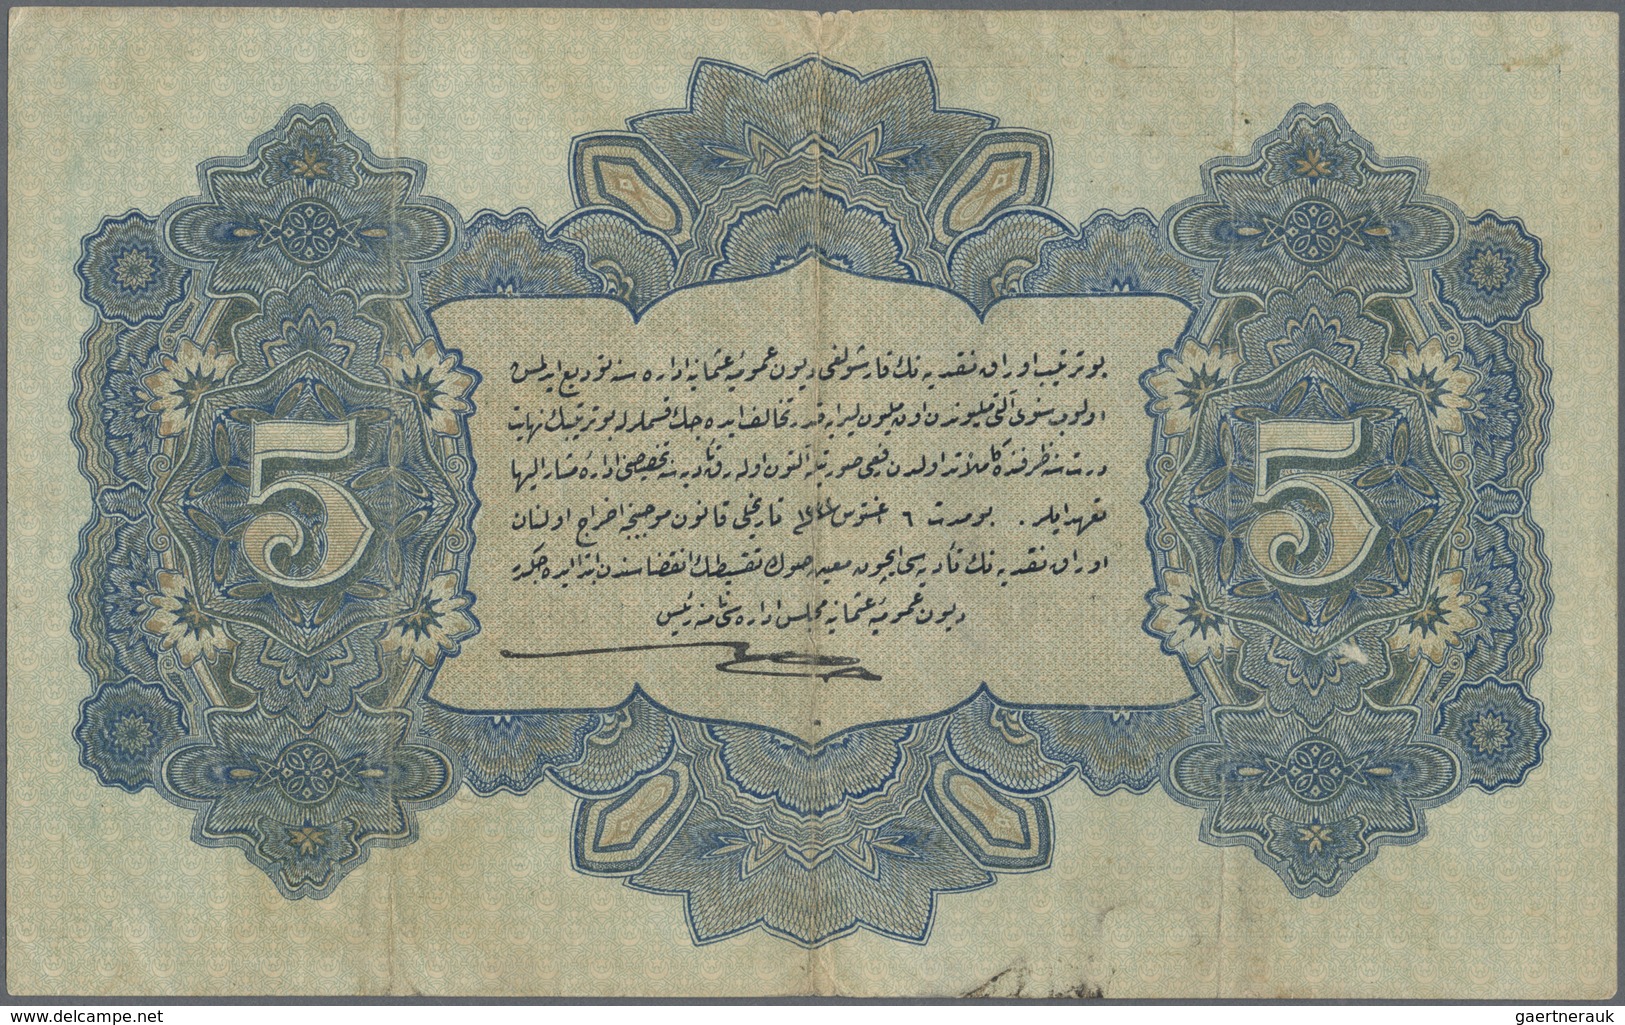 بو ترتيب اوراق نقديه نك قارشولغى ديون عموميهٔ عثمانيه اداره سنه توديع ايدلمش
اولوب سنوى آلتى مليوندن اون مليون ليرايه قدر تخالف ايده جك قسملرله بو ترتيبك نهايت
درت سنه ظرفنده كاملاً تداولدن رفعى صورتيله آلتون اوله رق تأديه سنه تخصيصنى ادارهٔ مشار اليها
تعهد ايلر . بو مدت ٦ اغستوس تاريخلى قانون موجبنجه اخراج اولنان
اوراق نقديه نك تأديه سى ايچون معين صوك تقسيطك انقضاسندن ابتدا ايده جكدر
ديون عموميهٔ عثمانيه مجلس اداره سى رئيس
5
5
delcampe.net
gaertnerauk